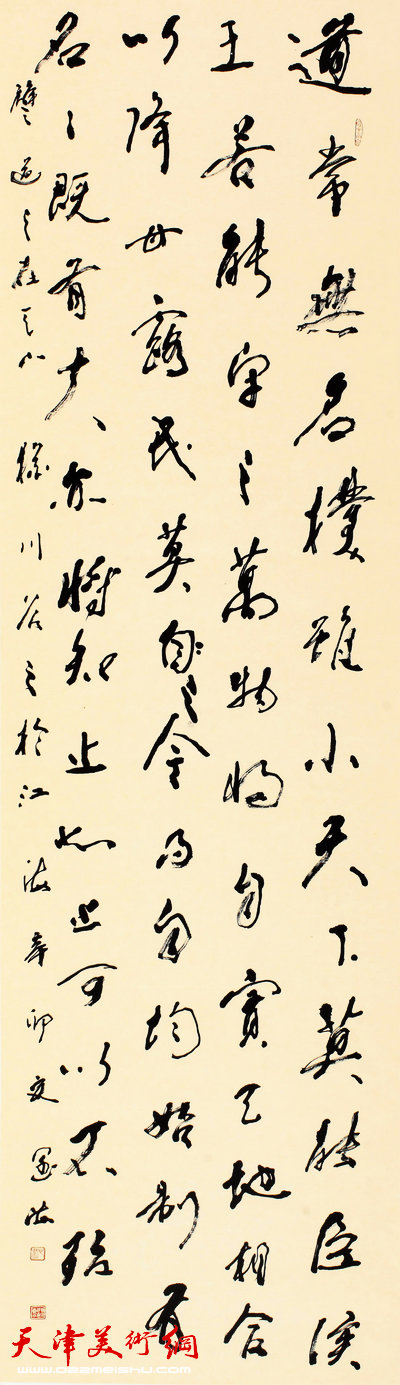 道常無名樸雖小天下莫能臣侯
王若能守之萬物將自賓天地相合
以降甘露民莫自之令而自均始制有
名々既有夫亦將知止知止可以不殆
譬道之在天下猶川谷之於江海辛卯夏
天津美術網
www.022meishu.com